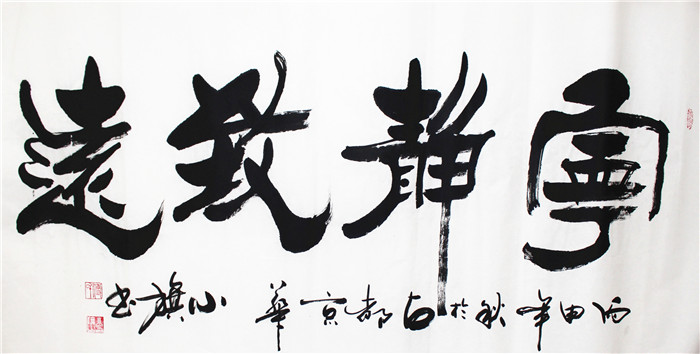 寧靜致遠
丙申年秋於古都京華 小旗书